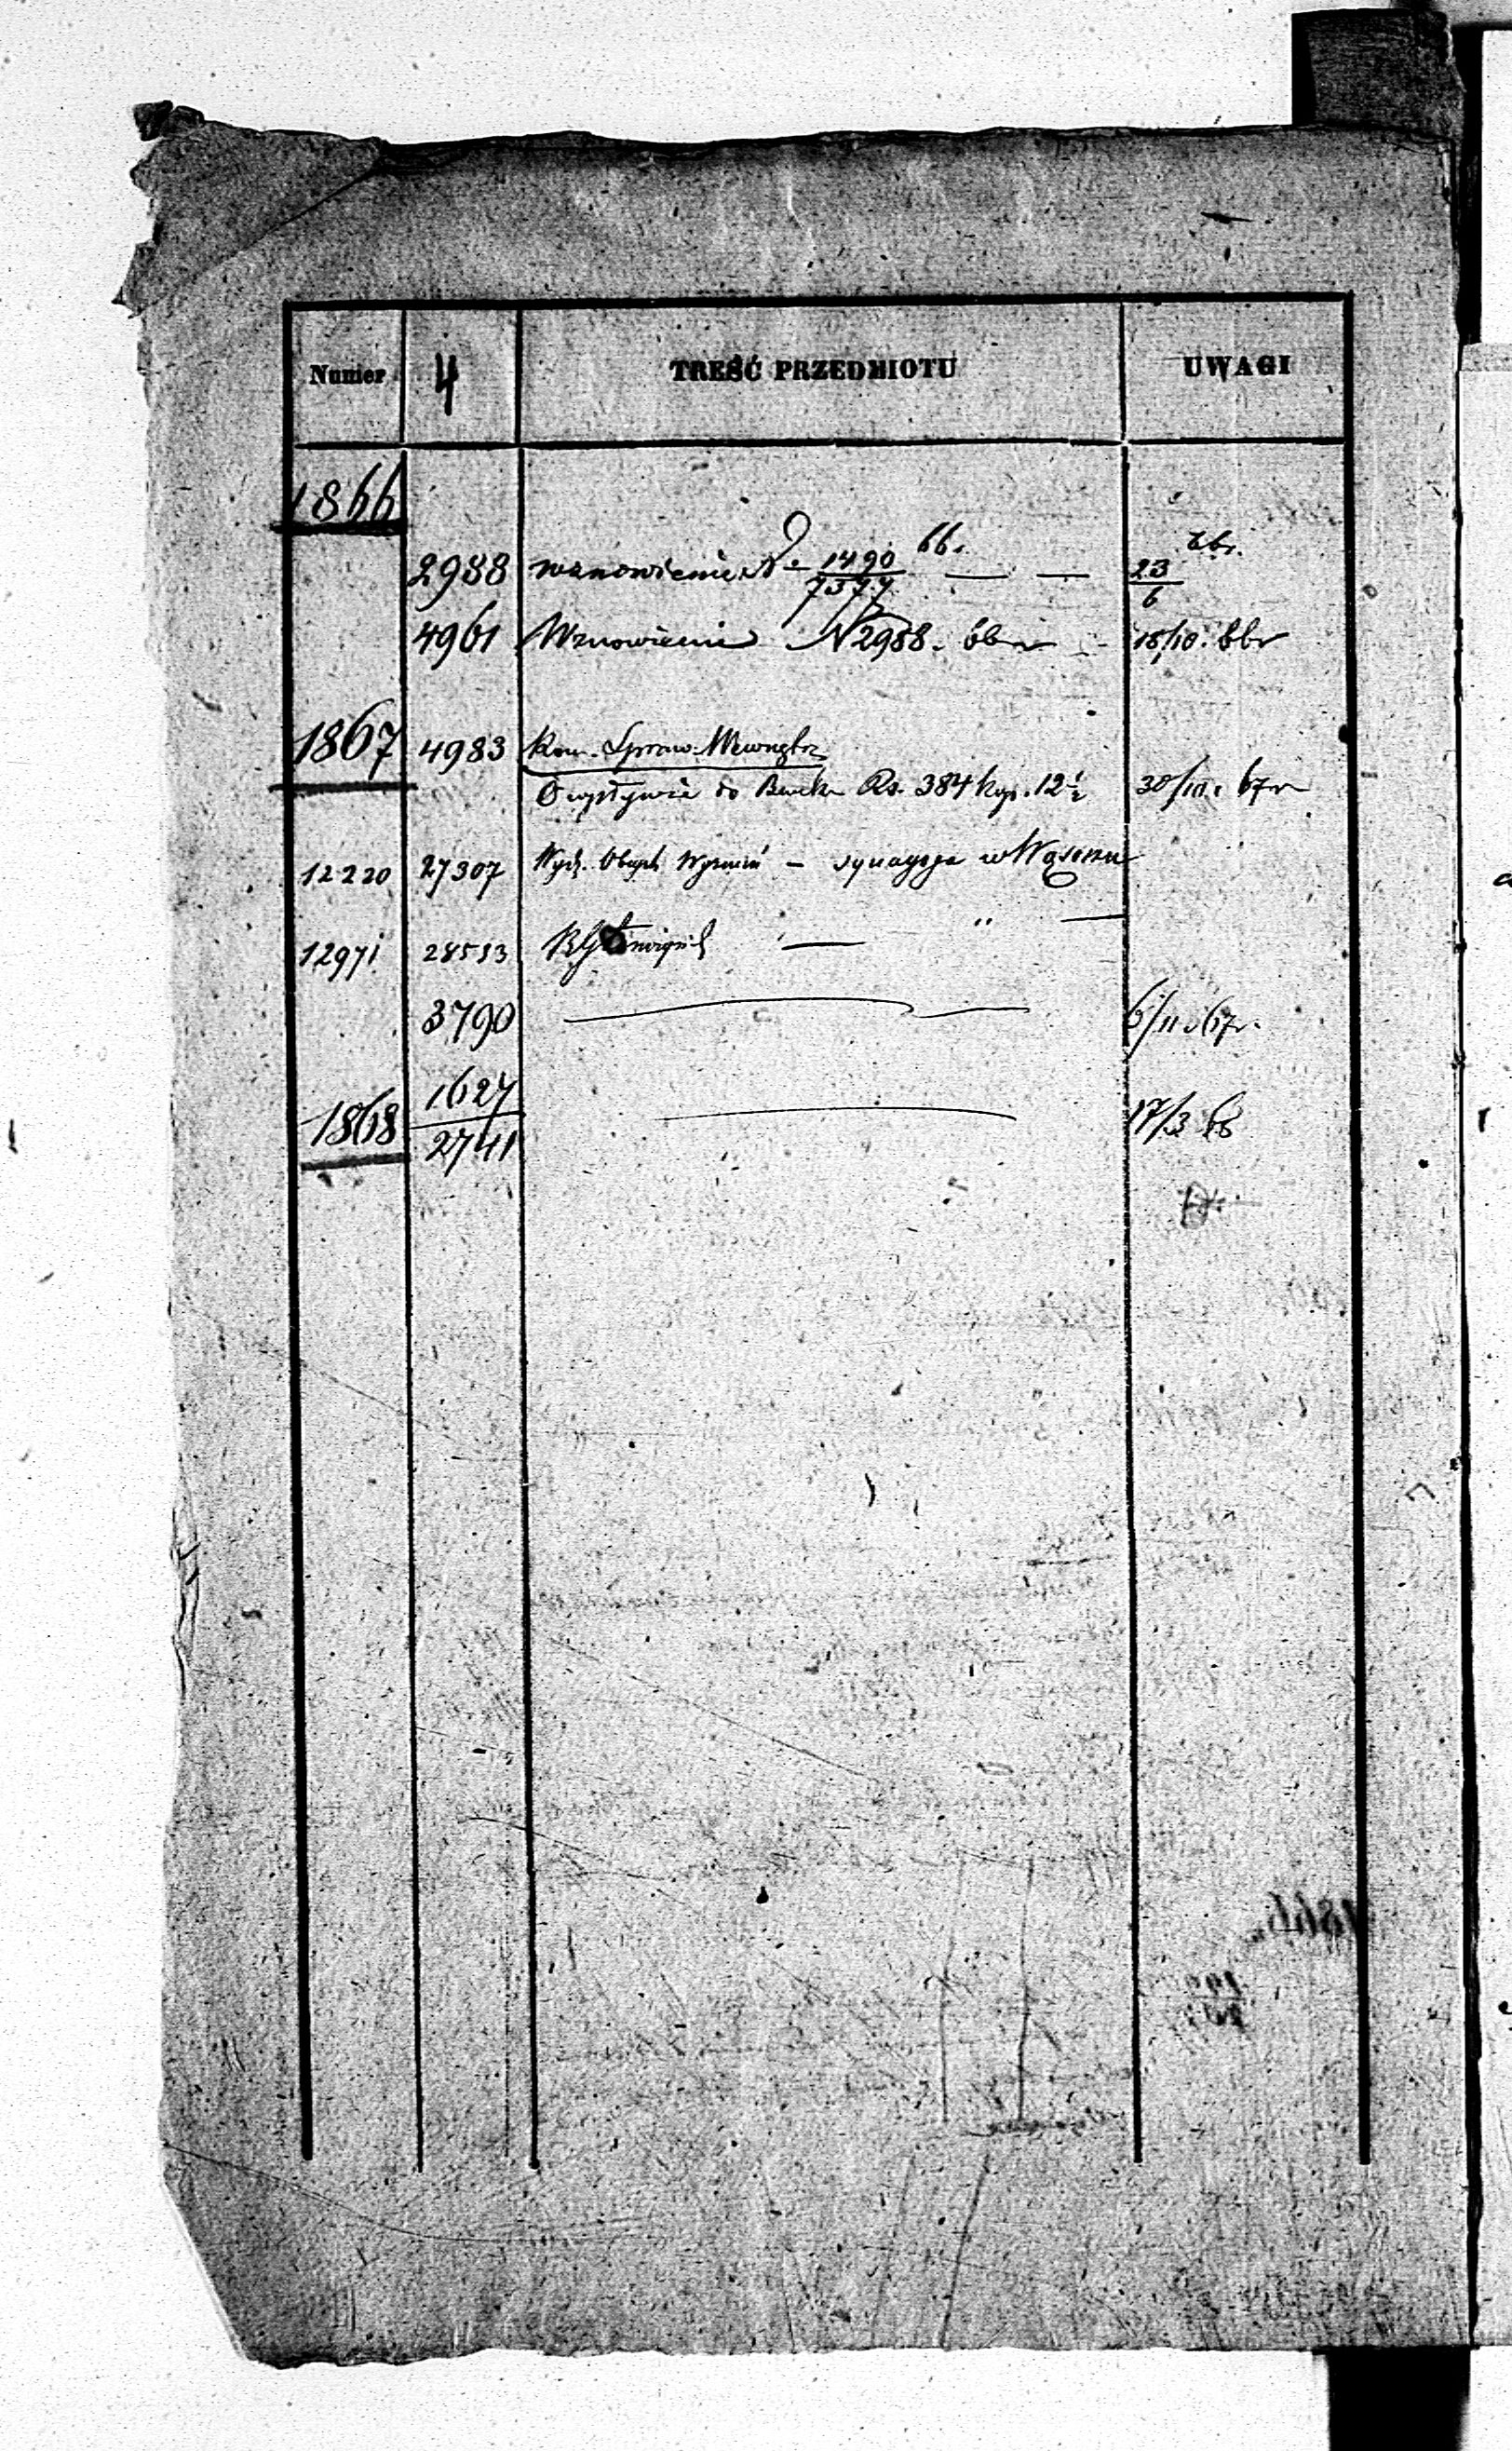 Numer 4 TREŚĆ PRZEDMIOTU UWAGI
1866
2988 wznowienie N 1490/7377 66. — — 23/6 66r.
4961 Wznowienie N 2988. 66r 18/10. 66r
1867 4983 Kom. Spraw. Wewnętrz
O wpływie do Rs. 384 kop. 12½ 30/10. 67r
12220 27307 Wydz. — synagoga w Wąsoszu
12971 28533 — " —
3790 — 6/11 67r.
1868 1627/2741 — 17/3 68